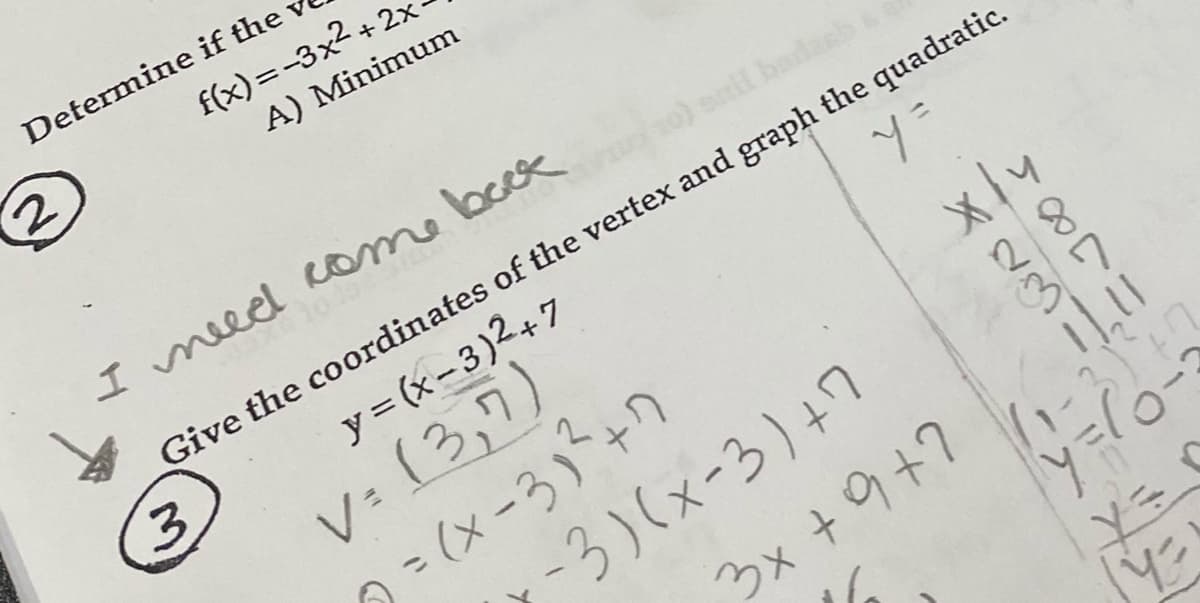 Determine if the
f(x)=-3x²+2x-
A) Minimum
2
I need come back
Give the coordinates of the vertex and graph the quadratic.
3
y=(x-3)²+7
V=(3,7)
0=(x-3)²+7
-3)(x-3)+7
3x+9+7
y=
x|y
2 8
3 7
1|11
y=(0-
y=